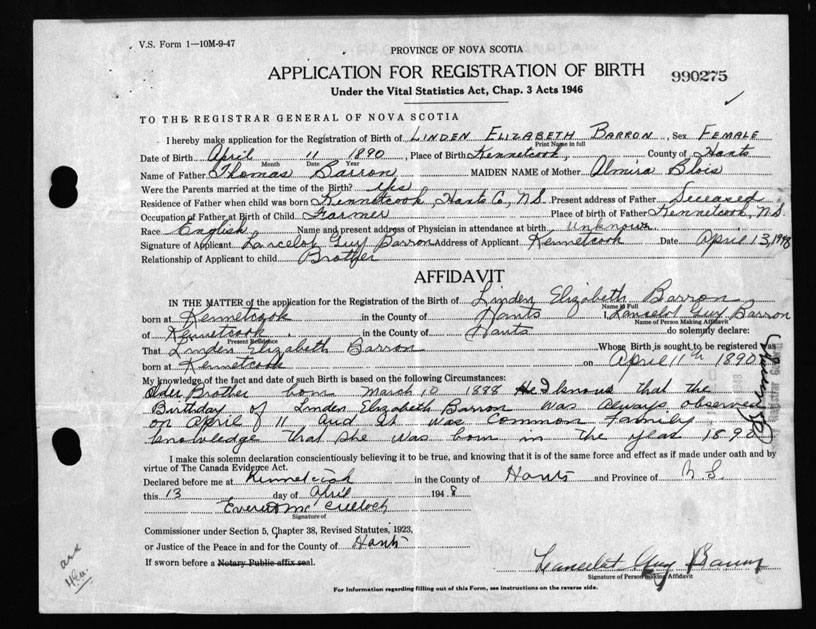 V.S. Form 1—10M-9-47
PROVINCE OF NOVA SCOTIA
APPLICATION FOR REGISTRATION OF BIRTH
990275
Under the Vital Statistics Act, Chap. 3 Acts 1946
TO THE REGISTRAR GENERAL OF NOVA SCOTIA
I hereby make application for the Registration of Birth of LINDEN ELIZABETH BARRON, Sex FEMALE
Print Name in full
Date of Birth April 11 1890, Place of Birth Kennetcook, County of Hants
Month Date Year
Name of Father Thomas Barron MAIDEN NAME of Mother Almira Blois
Were the Parents married at the time of the Birth? yes
Residence of Father when child was born Kennetcook, Hants Co, N.S. Present address of Father Deceased
Occupation of Father at Birth of Child Farmer Place of birth of Father Kennetcook, N.S.
Race English Name and present address of Physician in attendance at birth unknown
Signature of Applicant Lancelot Guy Barron Address of Applicant Kennetcook Date April 13, 1948
Relationship of Applicant to child Brother
AFFIDAVIT
IN THE MATTER of the application for the Registration of the Birth of Linden Elizabeth Barron
Name in Full
born at Kennetcook in the County of Hants I, Lancelot Guy Barron
Name of Person Making Affidavit
of Kennetcook in the County of Hants do solemnly declare:
Present Residence
That Linden Elizabeth Barron Whose Birth is sought to be registered was
born at Kennetcook on April 11th 1890
My knowledge of the fact and date of such Birth is based on the following Circumstances:
Older Brother born March 10 1888 I know that the
Birthday of Linden Elizabeth Barron was always observed
on April 11 and it was common family
knowledge that she was born in the year 1890
I make this solemn declaration conscientiously believing it to be true, and knowing that it is of the same force and effect as if made under oath and by
virtue of The Canada Evidence Act.
Declared before me at Kennetcook in the County of Hants and Province of N.S.
this 13 day of April 1948
Everett McCulloch
Signature of
Commissioner under Section 5, Chapter 38, Revised Statutes, 1923,
or Justice of the Peace in and for the County of Hants
If sworn before a Notary Public affix seal.
Lancelot Guy Barron
Signature of Person making Affidavit
For Information regarding filling out of this Form, see instructions on the reverse side.